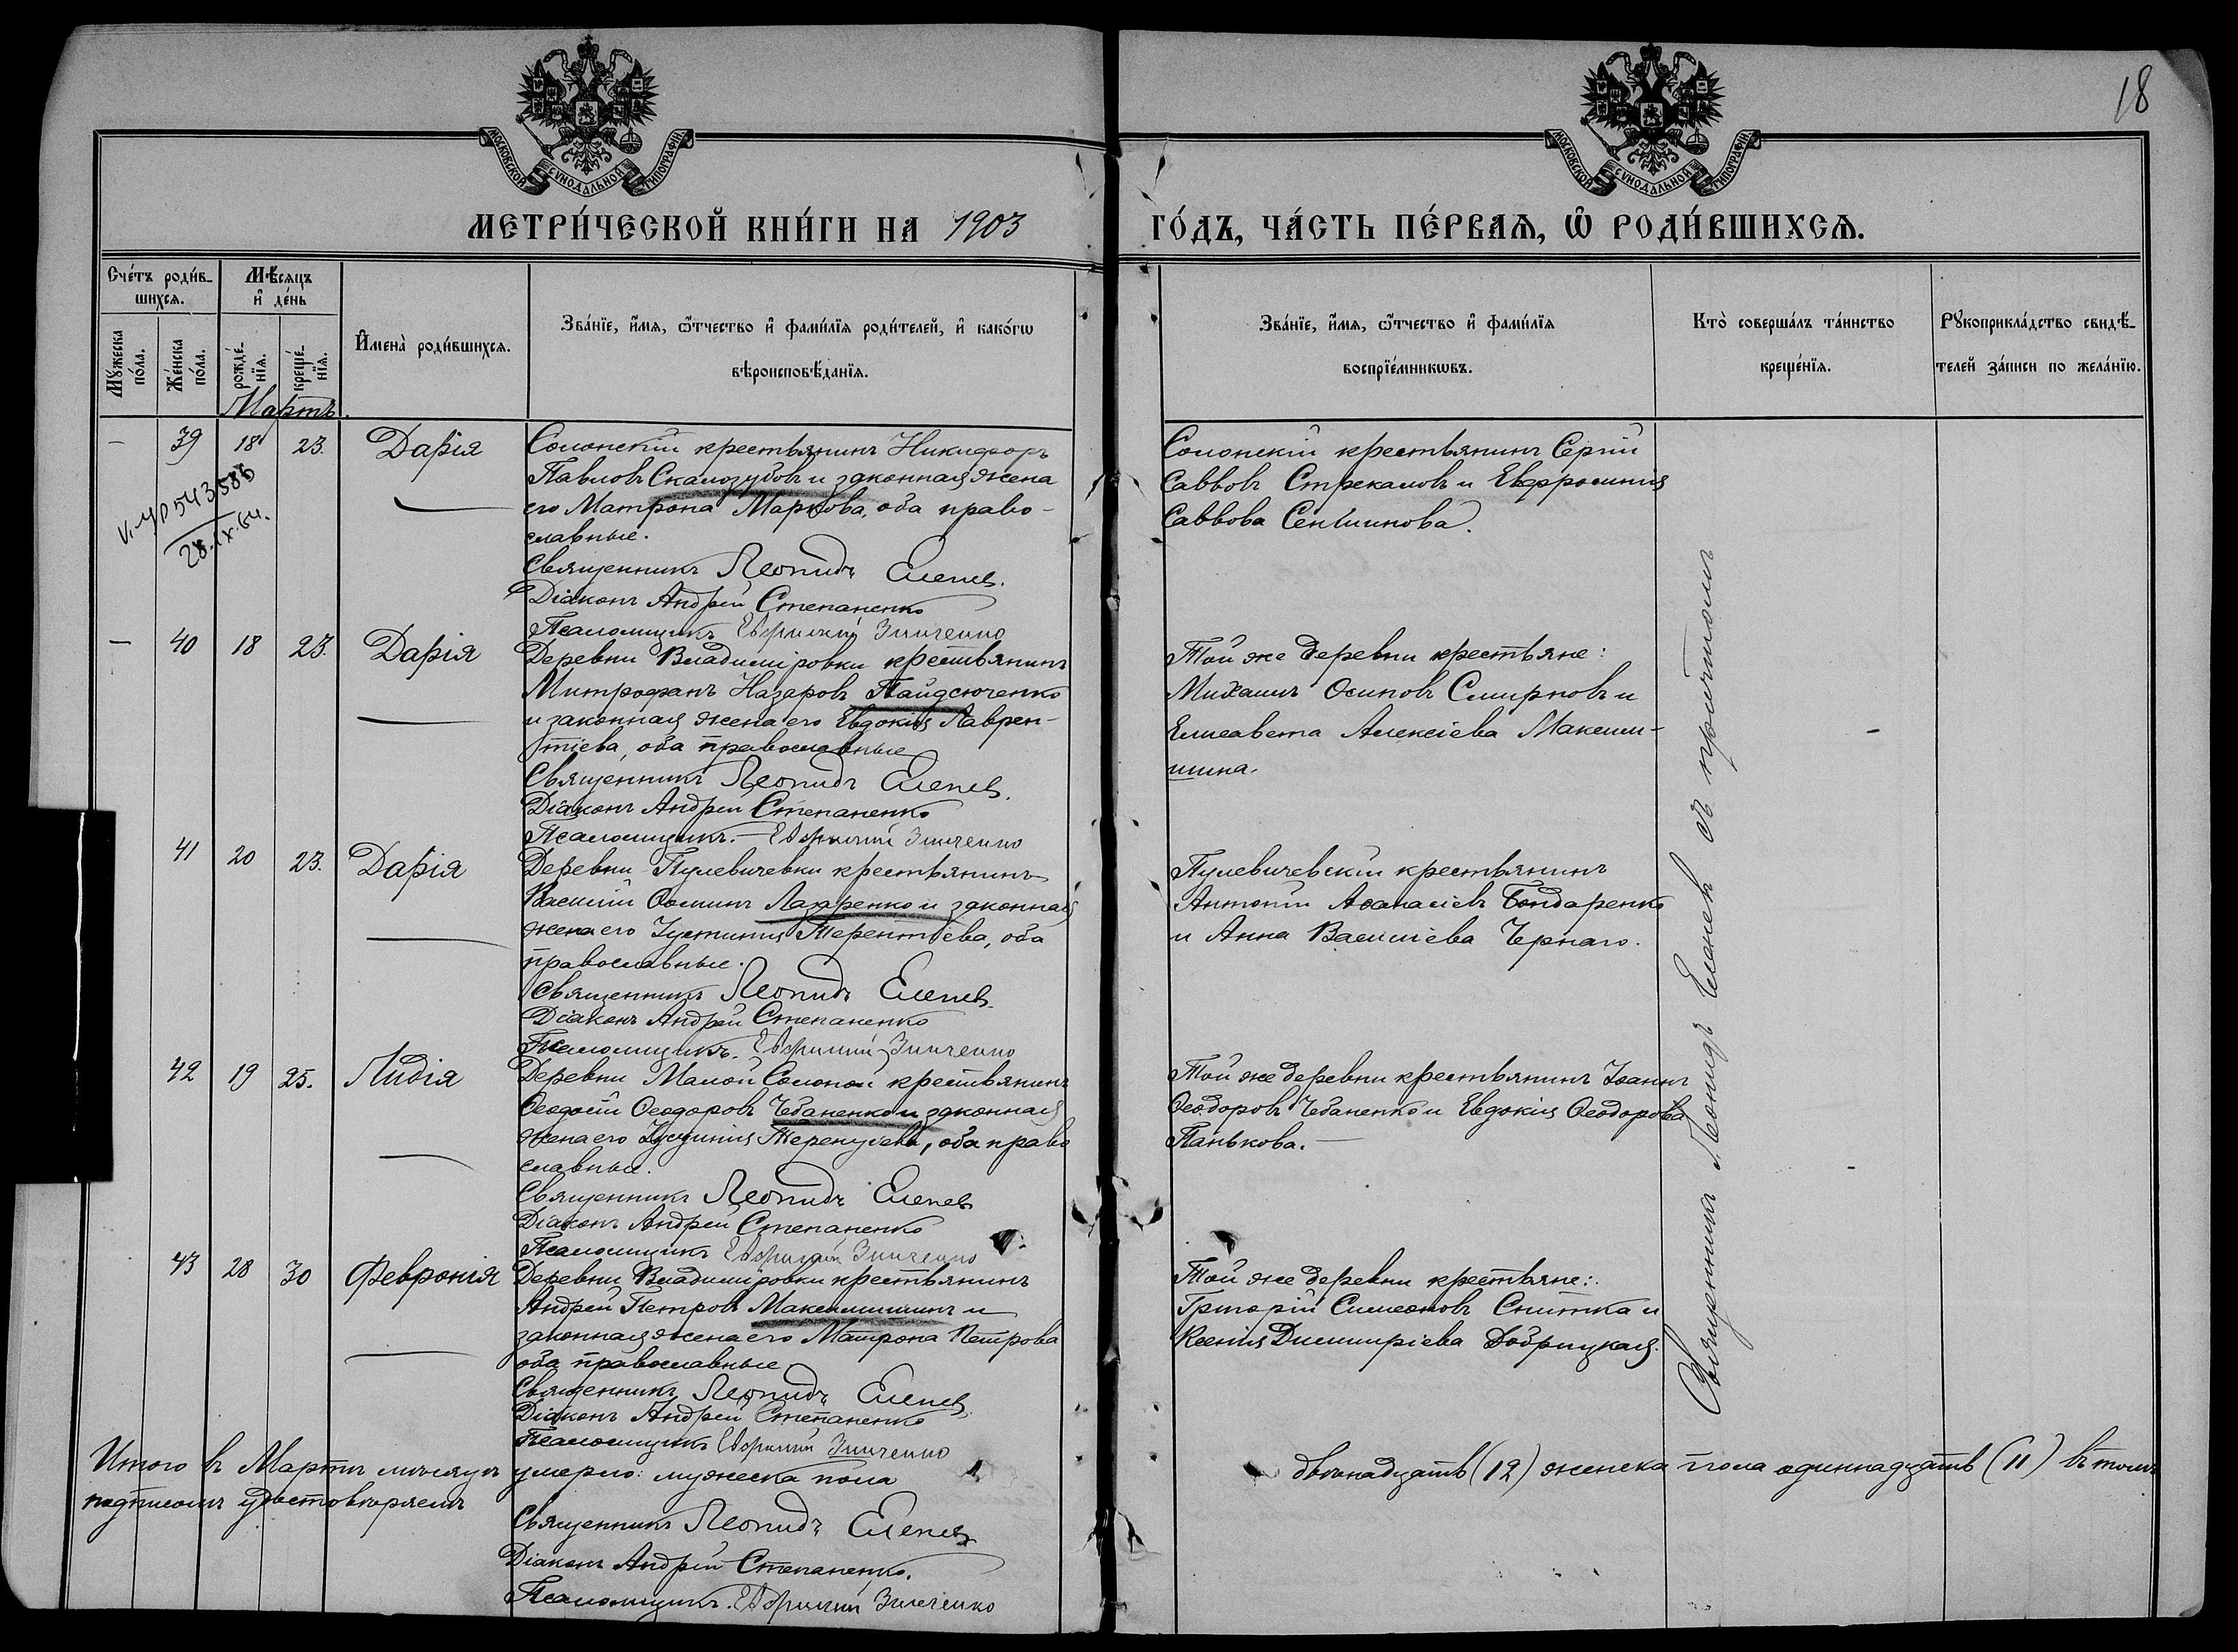 18
МОСКОВСКОЙ СѴНОДАЛЬНОЙ ТИПОГРАФІИ
МОСКОВСКОЙ СѴНОДАЛЬНОЙ ТИПОГРАФІИ
МЕТРИ́ЧЕСКОЙ КНИ́ГИ НА 1903 ГО́ДЪ, ЧА́СТЬ ПЕ́РВАѦ, Ѽ РОДИ́ВШИХСѦ.
Сче́тъ роди́в-
шихсѧ.
Мѣ́сѧцъ
и҆ де́нь
Мꙋ́жеска по́ла.
Же́нска по́ла.
рожде́-нїѧ.
креще́-нїѧ.
И҆мена̀ роди́вшихсѧ.
Зва́нїе, и҆́мѧ, ѻ҆́тчество и҆ фами́лїѧ роди́телей, и҆ како́гѡ
вѣроисповѣ́данїѧ.
Зва́нїе, и҆́мѧ, ѻ҆́тчество и҆ фами́лїѧ
воспрїе́мникѡвъ.
Кто̀ соверша́лъ та́инство
креще́нїѧ.
Рꙋкоприкла́дство свидѣ́-
телей за́писи по жела́нїю.
Мартъ.
— 39 18 23. Дарія
Солонскій крестьянинъ Никифоръ
Павловъ Скалозубовъ и законная жена
его Матрона Маркова, оба право-
славные.
Священникъ Леонидъ Еленевъ.
Діаконъ Андрей Степаненко
Псаломщикъ Евфимій Зинченко
Солонскій крестьянинъ Сергій
Саввовъ Стрекаловъ и Евфросинія
Саввова
V-УР 543588
28.IX.64.
— 40 18 23. Дарія
Деревни Владиміровки крестьянинъ
Митрофанъ Назаровъ Пайдсюченко
и законная жена его Евдокія Лаврен-
тіева, оба православные
Священникъ Леонидъ Еленевъ.
Діаконъ Андрей Степаненко
Псаломщикъ.— Евфимій Зинченко
Той же деревни крестьяне:
Михаилъ Осиповъ Смирновъ и
Елисавета Алексіева Максими-
шина.
41 20 23. Дарія
Деревни Пулевичевки крестьянинъ
Василій Ѳоминъ Лазаренко и законная
жена его Іустинія Терентіева, оба
православные.
Священникъ Леонидъ Еленевъ
Діаконъ Андрей Степаненко
Псаломщикъ. Евфимій Зинченко
Пулевичевскій крестьянинъ
Антоній Аѳанасіевъ Бондаренко
и Анна Василіева Чернаго.
42 19 25. Лидія
Деревни Малой Солоной крестьянинъ
Ѳеодосій Ѳеодоровъ Чебаненко и законная
жена его Іустинія Терентіева, оба право
славные.
Священникъ Леонидъ Еленевъ
Діаконъ Андрей Степаненко
Псаломщикъ Евфимій Зинченко
Той же деревни крестьянинъ Іоаннъ
Ѳеодоровъ Чебаненко и Евдокія Ѳеодорова
Панькова.—
43 28 30 Февронія
Деревни Владиміровки крестьянинъ
Андрей Петровъ Максимишинъ и
законная жена его Матрона Петрова
оба православные
Священникъ Леонидъ Еленевъ
Діаконъ Андрей Степаненко
Псаломщикъ Евфимій Зинченко
Той же деревни крестьяне:
Григорій Симеоновъ Снитка и
Ксенія Димитріева Добрицкая.
Священникъ Леонидъ Еленевъ съ причтомъ
Итого въ Мартѣ мѣсяцѣ умерло: мужеска пола двѣнадцать (12) женска пола одиннадцать (11) въ томъ
подписомъ удостовѣряемъ
Священникъ Леонидъ Еленевъ
Діаконъ Андрей Степаненко.
Псаломщикъ. Евфимій Зинченко